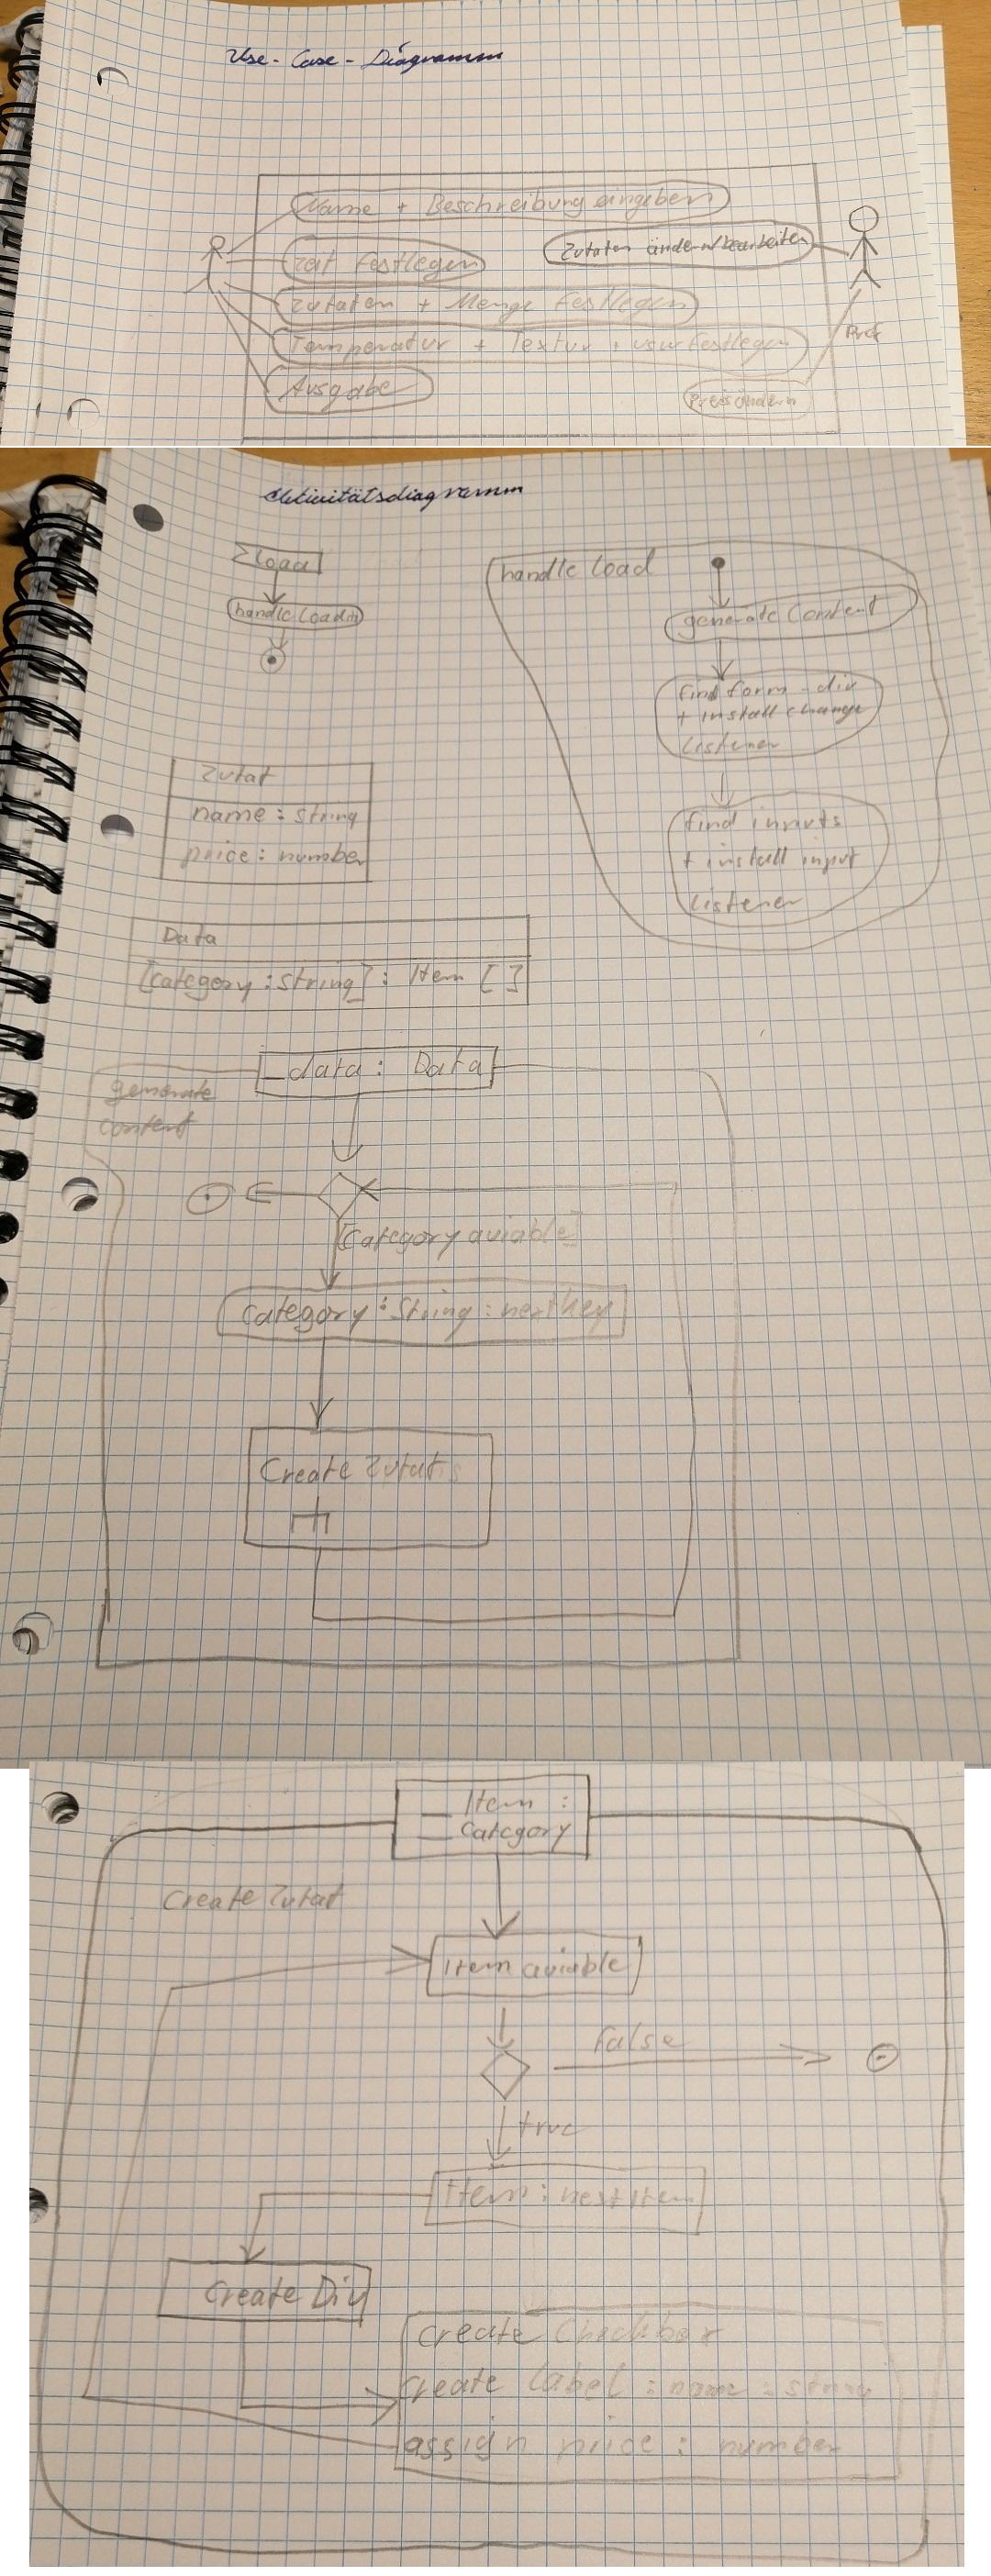 Use-Case-Diagramm
Name + Beschreibung eingeben
Zutaten ändern/bearbeiten
Zeit Festlegen
Zutaten + Menge Festlegen
Temperatur + Textur + usw Festlegen
Ausgabe
Preis ändern
Aktivitätsdiagramm
Load
handle Load
handle Load
generate Content
find form-div
+ install change
Listener
find inputs
+ install input
Listener
Zutat
name : string
price : number
Data
[category : string] : Item []
_data : Data
generate
content
[Category aviable]
Category : String : nextKey
Create Zutat
_Item :
_Category
Create Zutat
Item aviable
false
true
Item : next Item
Create Div
create Checkbox
create label : name : string
assign price : number